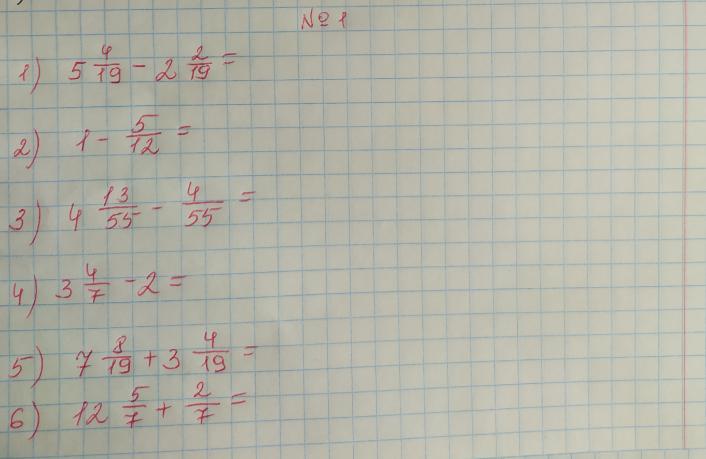 № 1
1) 5 4/19 - 2 2/19 =
2) 1 - 5/12 =
3) 4 13/55 - 4/55 =
4) 3 4/7 - 2 =
5) 7 8/19 + 3 4/19 =
6) 12 5/7 + 2/7 =